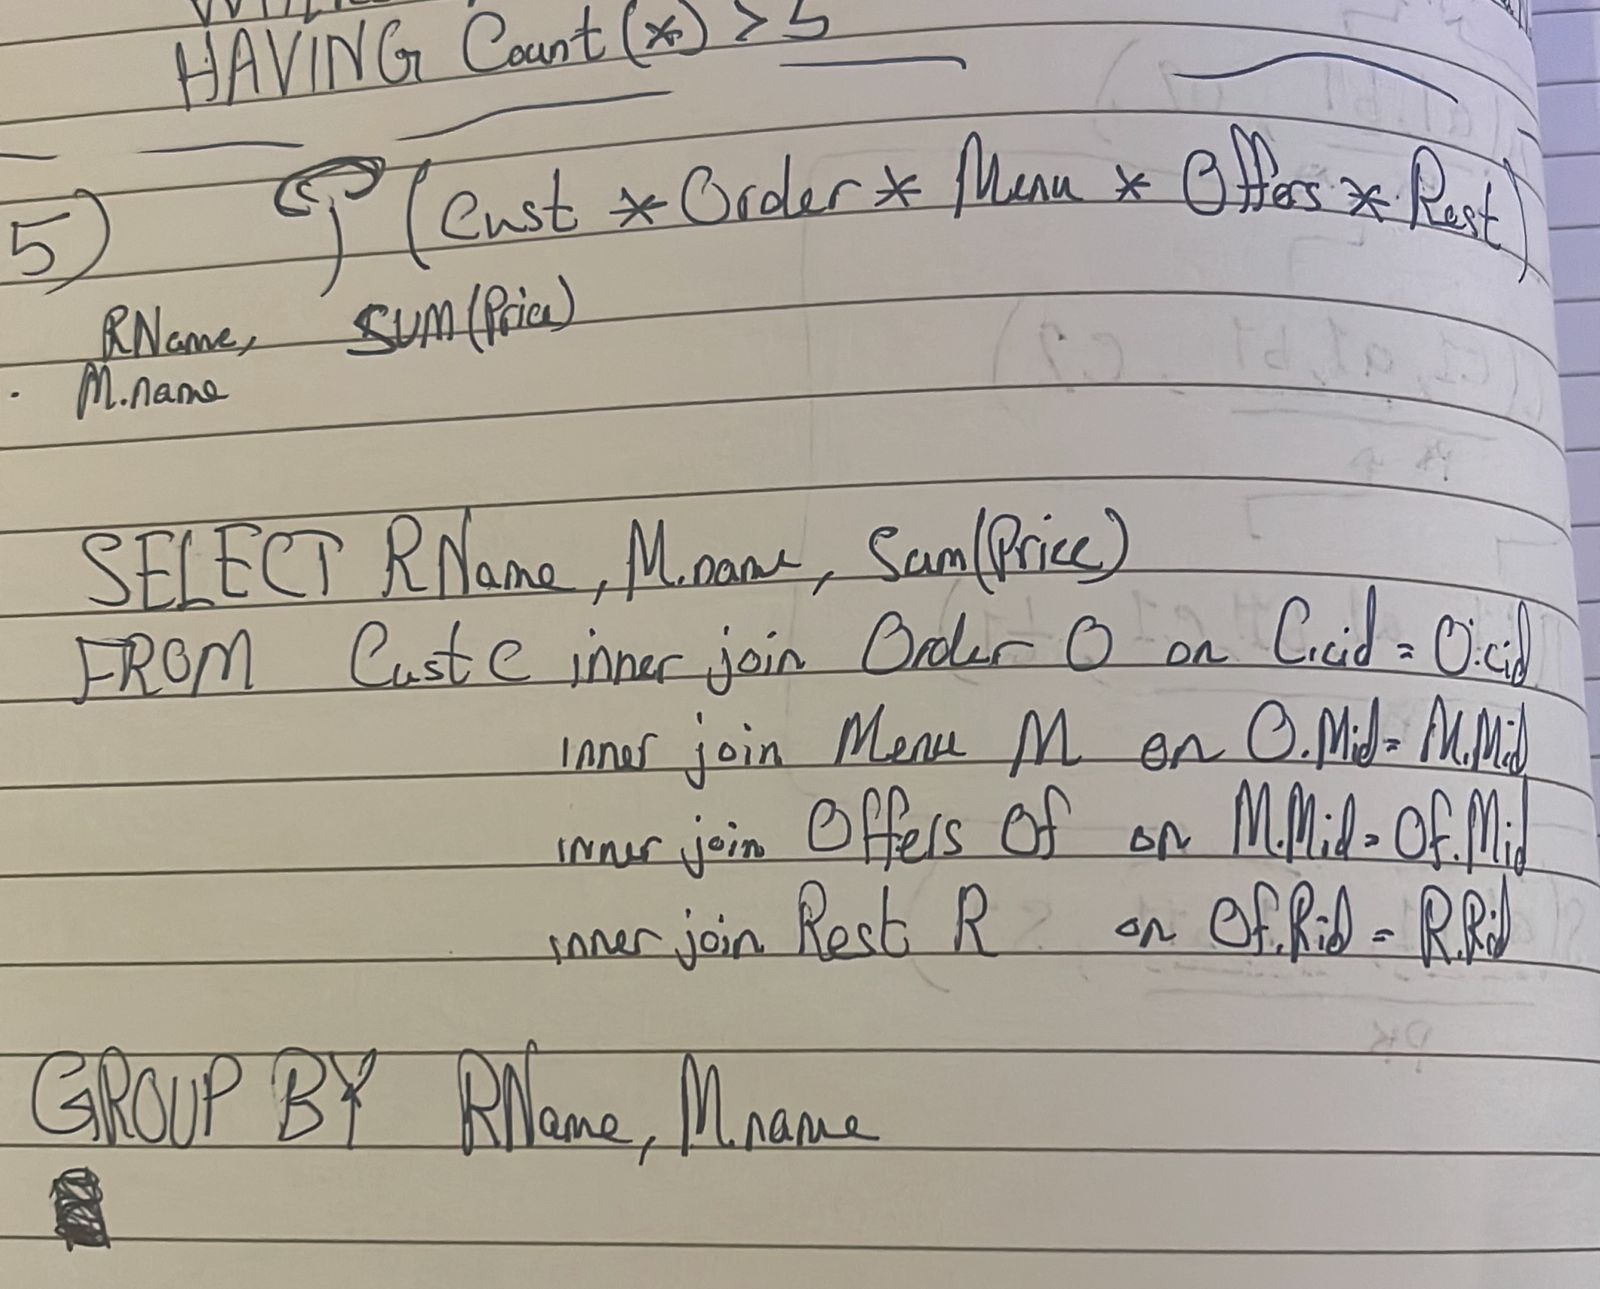 HAVING Count(*) > 5
5) (Cust * Order * Menu * Offers * Rest)
RName, SUM(Price)
M.name
SELECT RName, M.name, Sum(Price)
FROM Cust C inner join Order O on C.cid = O.cid
inner join Menu M on O.Mid = M.Mid
inner join Offers Of on M.Mid = Of.Mid
inner join Rest R on Of.Rid = R.Rid
GROUP BY RName, M.name